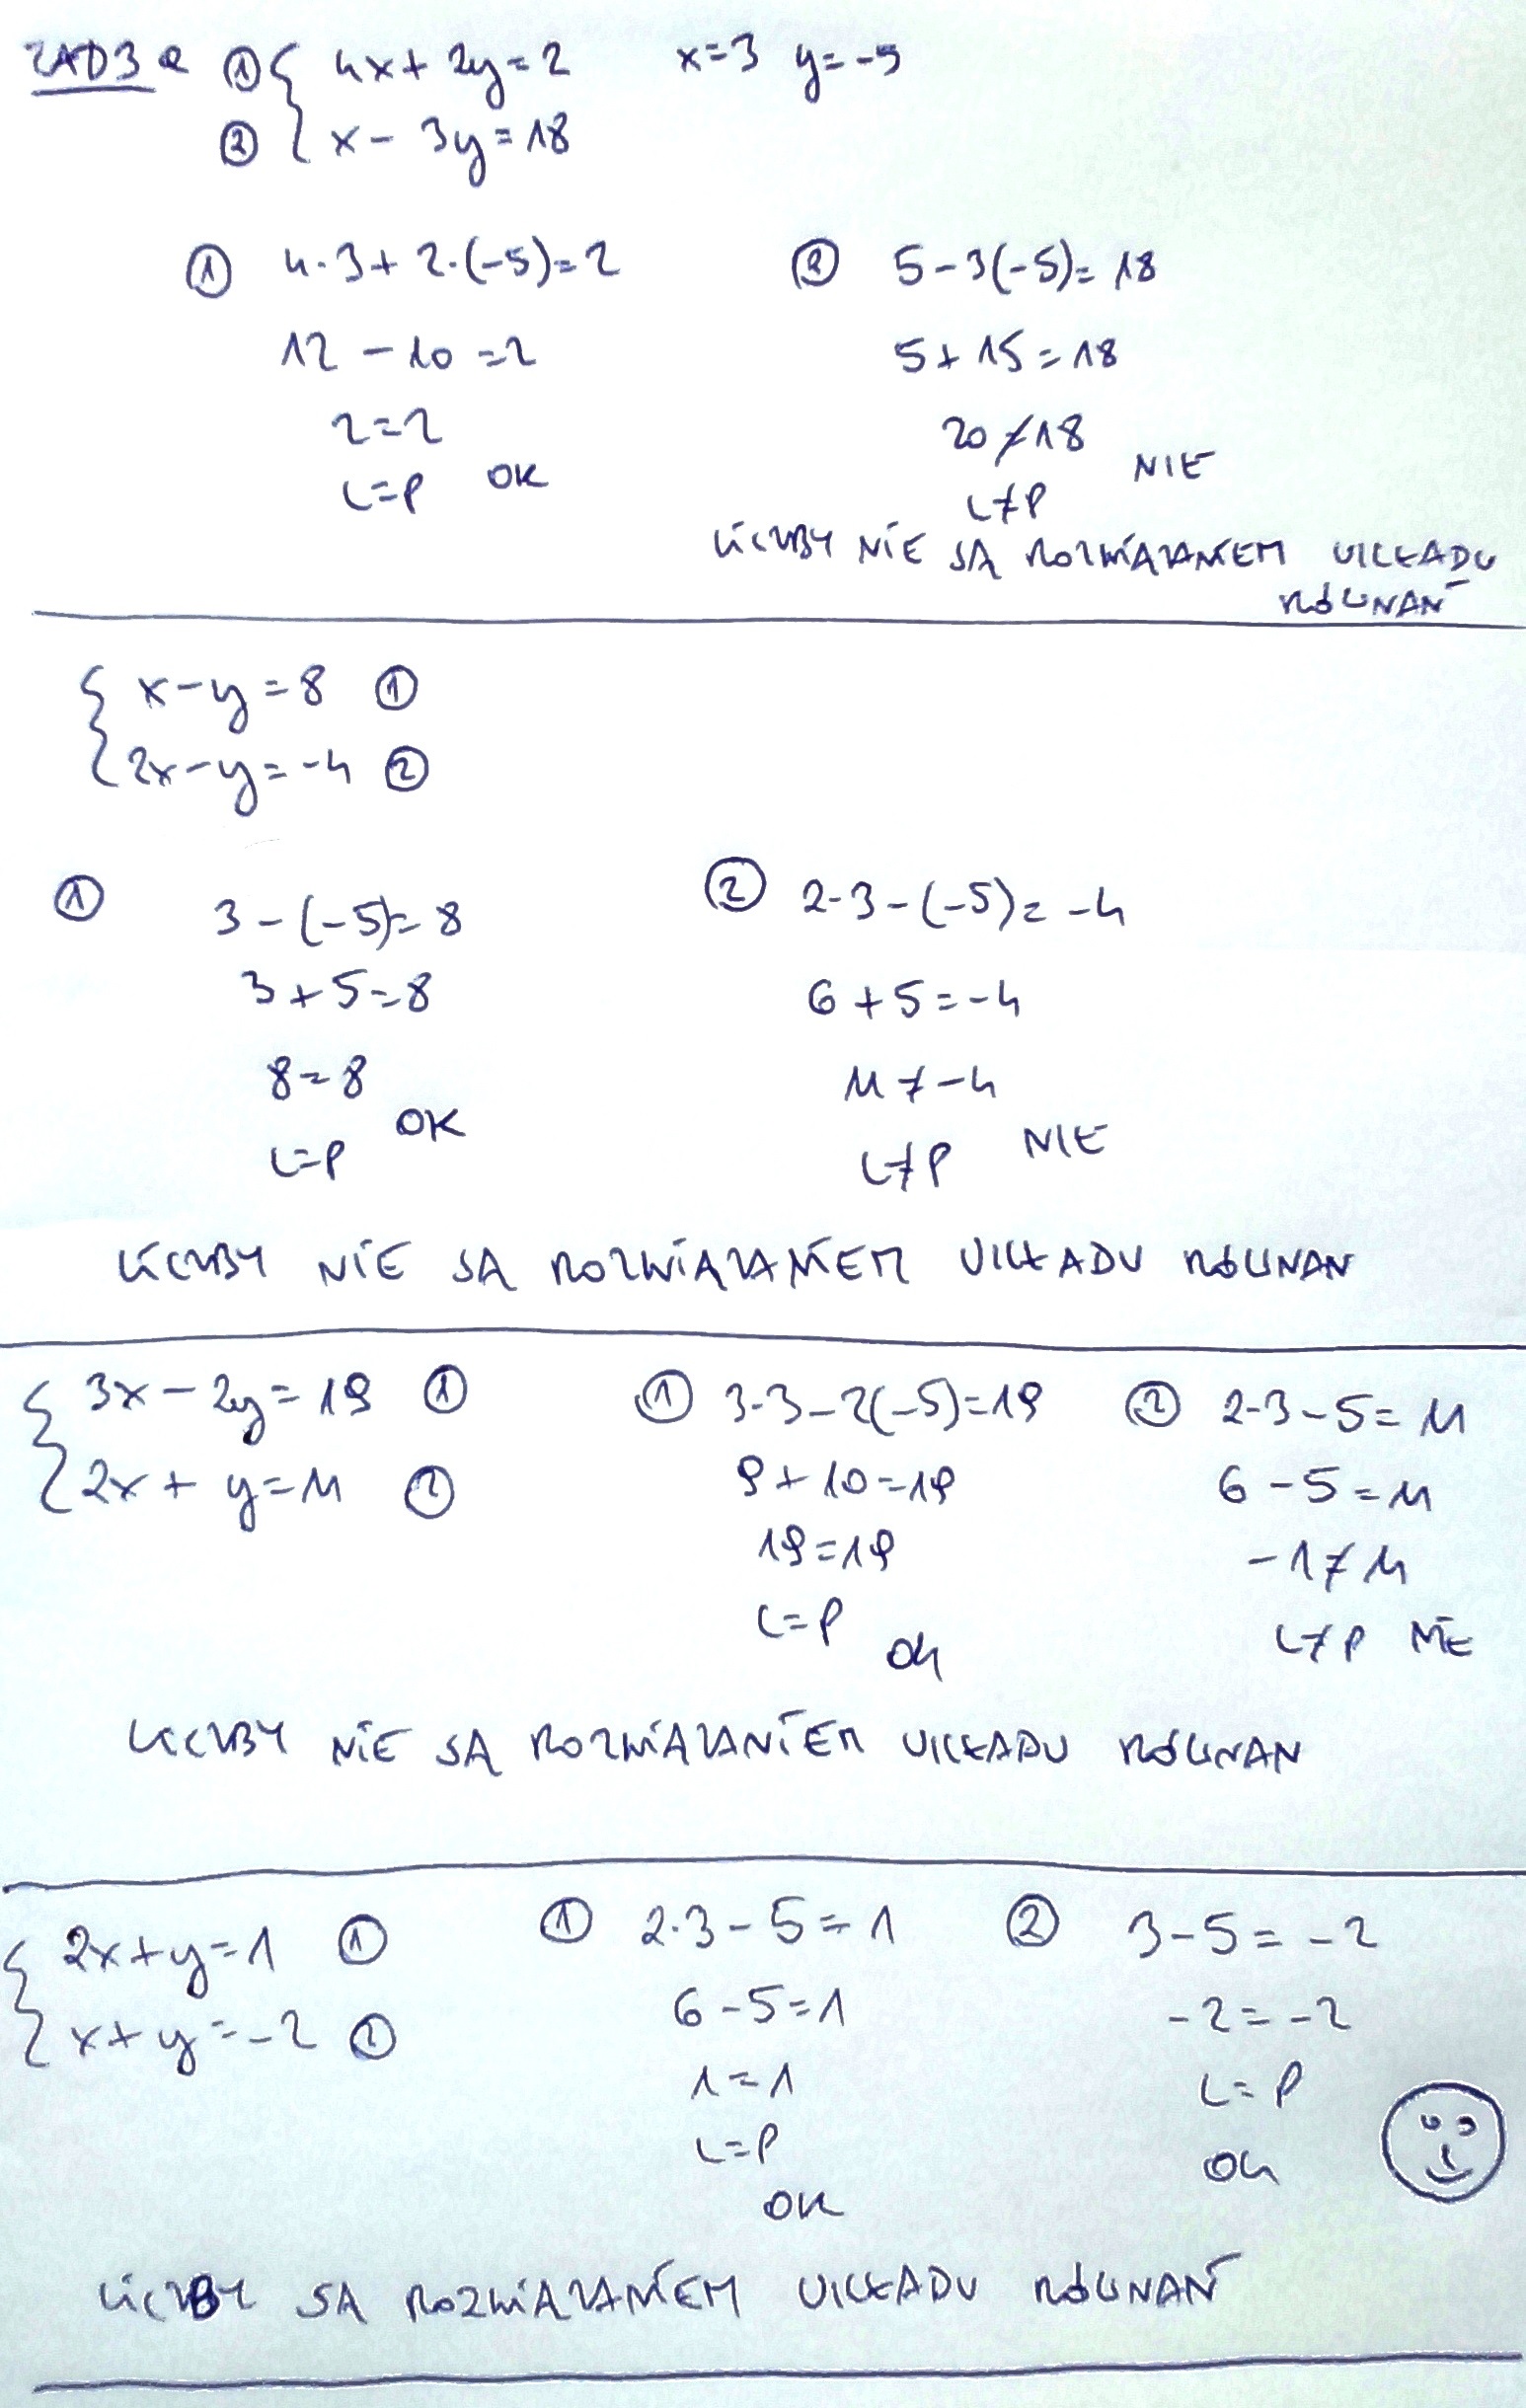 ZAD 3 a ① { 4x + 2y = 2 x = 3 y = -5
② { x - 3y = 18
① 4·3 + 2·(-5) = 2
12 - 10 = 2
2 = 2
L = P OK
② 5 - 3(-5) = 18
5 + 15 = 18
20 ≠ 18
L ≠ P NIE
LICZBY NIE SĄ ROZWIĄZANIEM UKŁADU
RÓWNAŃ
{ x - y = 8 ①
{ 2x - y = -4 ②
① 3 - (-5) = 8
3 + 5 = 8
8 = 8
L = P OK
② 2·3 - (-5) = -4
6 + 5 = -4
11 ≠ -4
L ≠ P NIE
LICZBY NIE SĄ ROZWIĄZANIEM UKŁADU RÓWNAN
{ 3x - 2y = 19 ①
{ 2x + y = 11 ②
① 3·3 - 2(-5) = 19
9 + 10 = 19
19 = 19
L = P OK
② 2·3 - 5 = 11
6 - 5 = 11
-1 ≠ 11
L ≠ P NIE
LICZBY NIE SĄ ROZWIĄZANIEM UKŁADU RÓWNAN
{ 2x + y = 1 ①
{ x + y = -2 ②
① 2·3 - 5 = 1
6 - 5 = 1
1 = 1
L = P
OK
② 3 - 5 = -2
-2 = -2
L = P
OK
LICZBY SĄ ROZWIĄZANIEM UKŁADU RÓWNAŃ